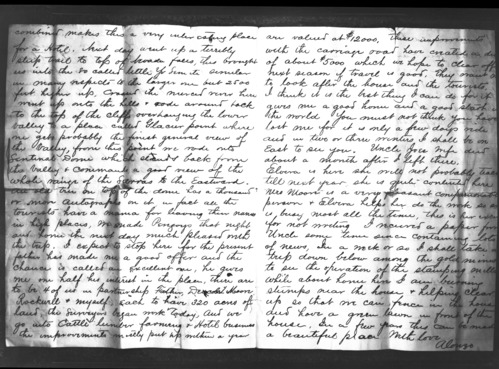 combined makes this a very interesting place
for a Hotel. Next day went up a terribly
steep trail to top of Nevada falls, this brought
us into the so called little Yosemite similar
in many respects to the larger one but 2500
feet higher up, Crossed the Merced river here
went up onto the hills & rode around back
to the top of the Cliff overhanging the lower
Valley to a place called Glacier point where
we get probably the finest general view of
the Valley, from this point we rode onto
Sentinal Dome which stands back from
the Valley & commands a good view of the
whole range of the Sierras to the Eastward.
tree on top of the dome has a thousand
or more autographs on it, in fact all the
tourists have a mania for leaving their names
in high places, we made Peregoys that night
home the next day much pleased with
the trip. I expect to stop here for the present
father has made me a good offer and the
Chance is called an excellent one, he gives
me one half his interest in the place, there are
to be 4 of us in partnership Father, Moore
Rockwell & myself, each to have 320 acres of
land, the Surveyors began work Today, and we
go into Cattle lumber farming & Hotel business
the improvements merely put up within a year
are valued at $12000, these improvements
with the carriage road have created a debt
of about 5000 which we hope to clear off
next season if travel is good, they want me
to look after the house and the tourists,
I think it is the best thing I can do for it
gives me a good home and a good start in
the world. You must not think you have
lost me for it is only a few days ride
and in two or three months I shall be on
East to see you. Uncle Joe may
about a month after I left there.
Elvira is here she will not probably
till next year she is quite contented here
Mrs Moore is a very pleasant companionable
person & Elvira helps her do the work so she
is busy most all the time, this is her
for not writing I received a paper from
Uncle some time since containing a lot
of news, In a week or so I shall take a
trip down below among the gold mines
to see the operation of the stamping mills
while about home here I am burning
stumps near the house & helping clean
up so that we can fence in the house
and have a green lawn in front of the
house, In a few years this can be made
a beautiful place. With love
Alonzo